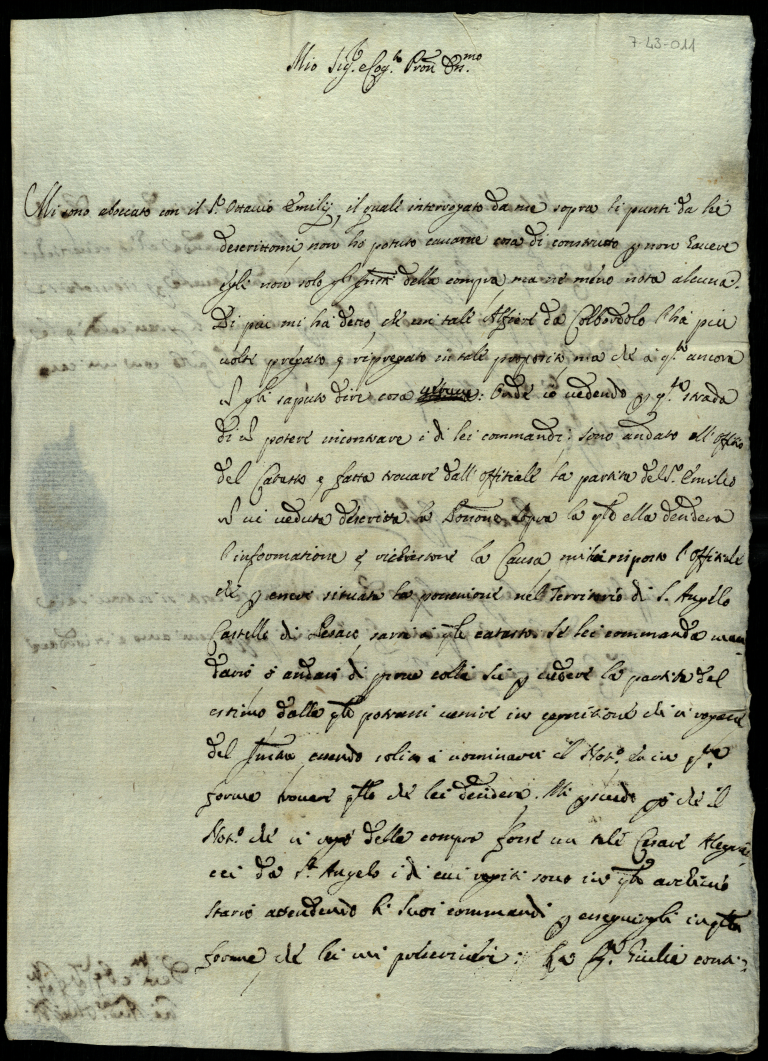 7-43-011
Mio Sig.r e Cog.to Pron Oss.mo
Mi sono aboccato con il S.r Ottavio Emilij, il quale interrogato da me sopra li punti da lei
descrittomi non ho potuto cavarne cosa di construtto p non havere
egli non solo gl' della compra ma ne meno nota alcuna.
Di più mi ha detto che un tale Alfiere da Colbordolo l'ha più
volte pregato e ripregato in tale proposito, ma che a q.to ancora
gli saputo dire cosa : Onde io vedendo p q.ta strada
di potere incontrare i di lei commandi: sono andato all'Offitio
del Catasto e fatta trovare dall'Offitiale la partita del S.r Emilio
vi veduta descritta la sopra la q.le ella desidera
l'informatione e richiestone la Causa mi ha risposto l'Offitiale
che p essere situata la possessione nel Territorio di S. Angelo
Castello di Pesaro sarà a q.l catasto. Se lei commanda man
darò o andarò di colà p vedere la partita del
estimo dalla q.le potrassi venire in cognitione chi si rogasse
del essendo solito a nominarsi il Not.o e in q.ta
forma trovare q.llo che lei desidera. Mi p che il
Not.o che si rogò della compra fosse un tale Cesare
da S.t Angelo i di cui rogiti sono in q.l archivio
starò attendendo li suoi commandi p esseguirgli in q.lla
forma che lei mi : La S.ra Giulia